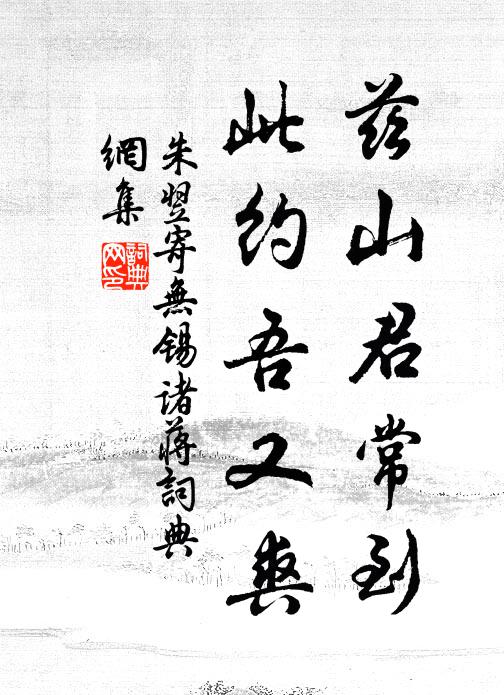 茲山君常到
此約吾又爽
朱翌寄無錫諸蔣詞典
網集
詞典
网印